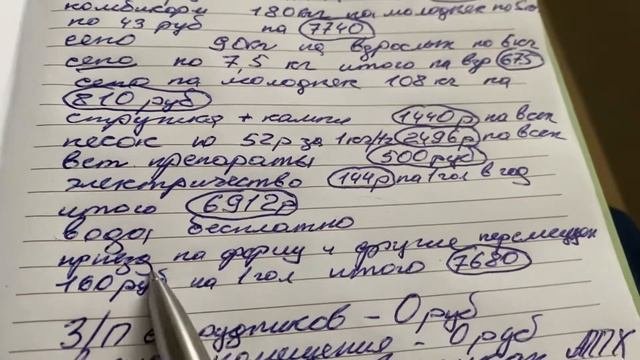 комбикорм 180кг на молодняк по 6кг
по 43 руб на 7740
сено 90кг на взрослых по 6кг
сено по 7,5 кг итого на взр 675
сено на молодняк 108 кг на
810 руб
стружка + камни 1440р на всех
песок по 52р за 1кг 2496р на всех
вет препараты 500 руб
электричество 144р на 1 гол в год
итого 6912р
вода бесплатно
привоз на ферму и другие перемещен
160 руб на 1 гол итого 7680
З/П сотрудников - 0 руб
помещение - 0 руб